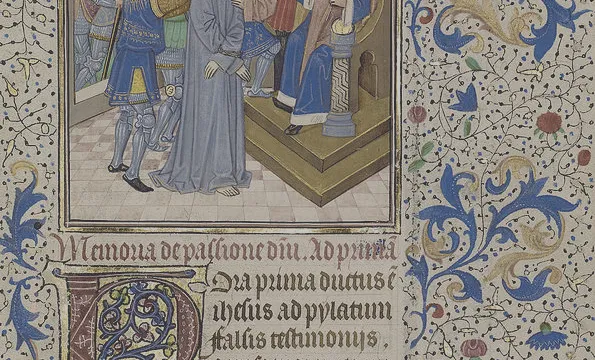 Memoria de passione dñi. Ad primã
Ora prima ductus ē
ihesus ad pylatum
falsis testimonijs.